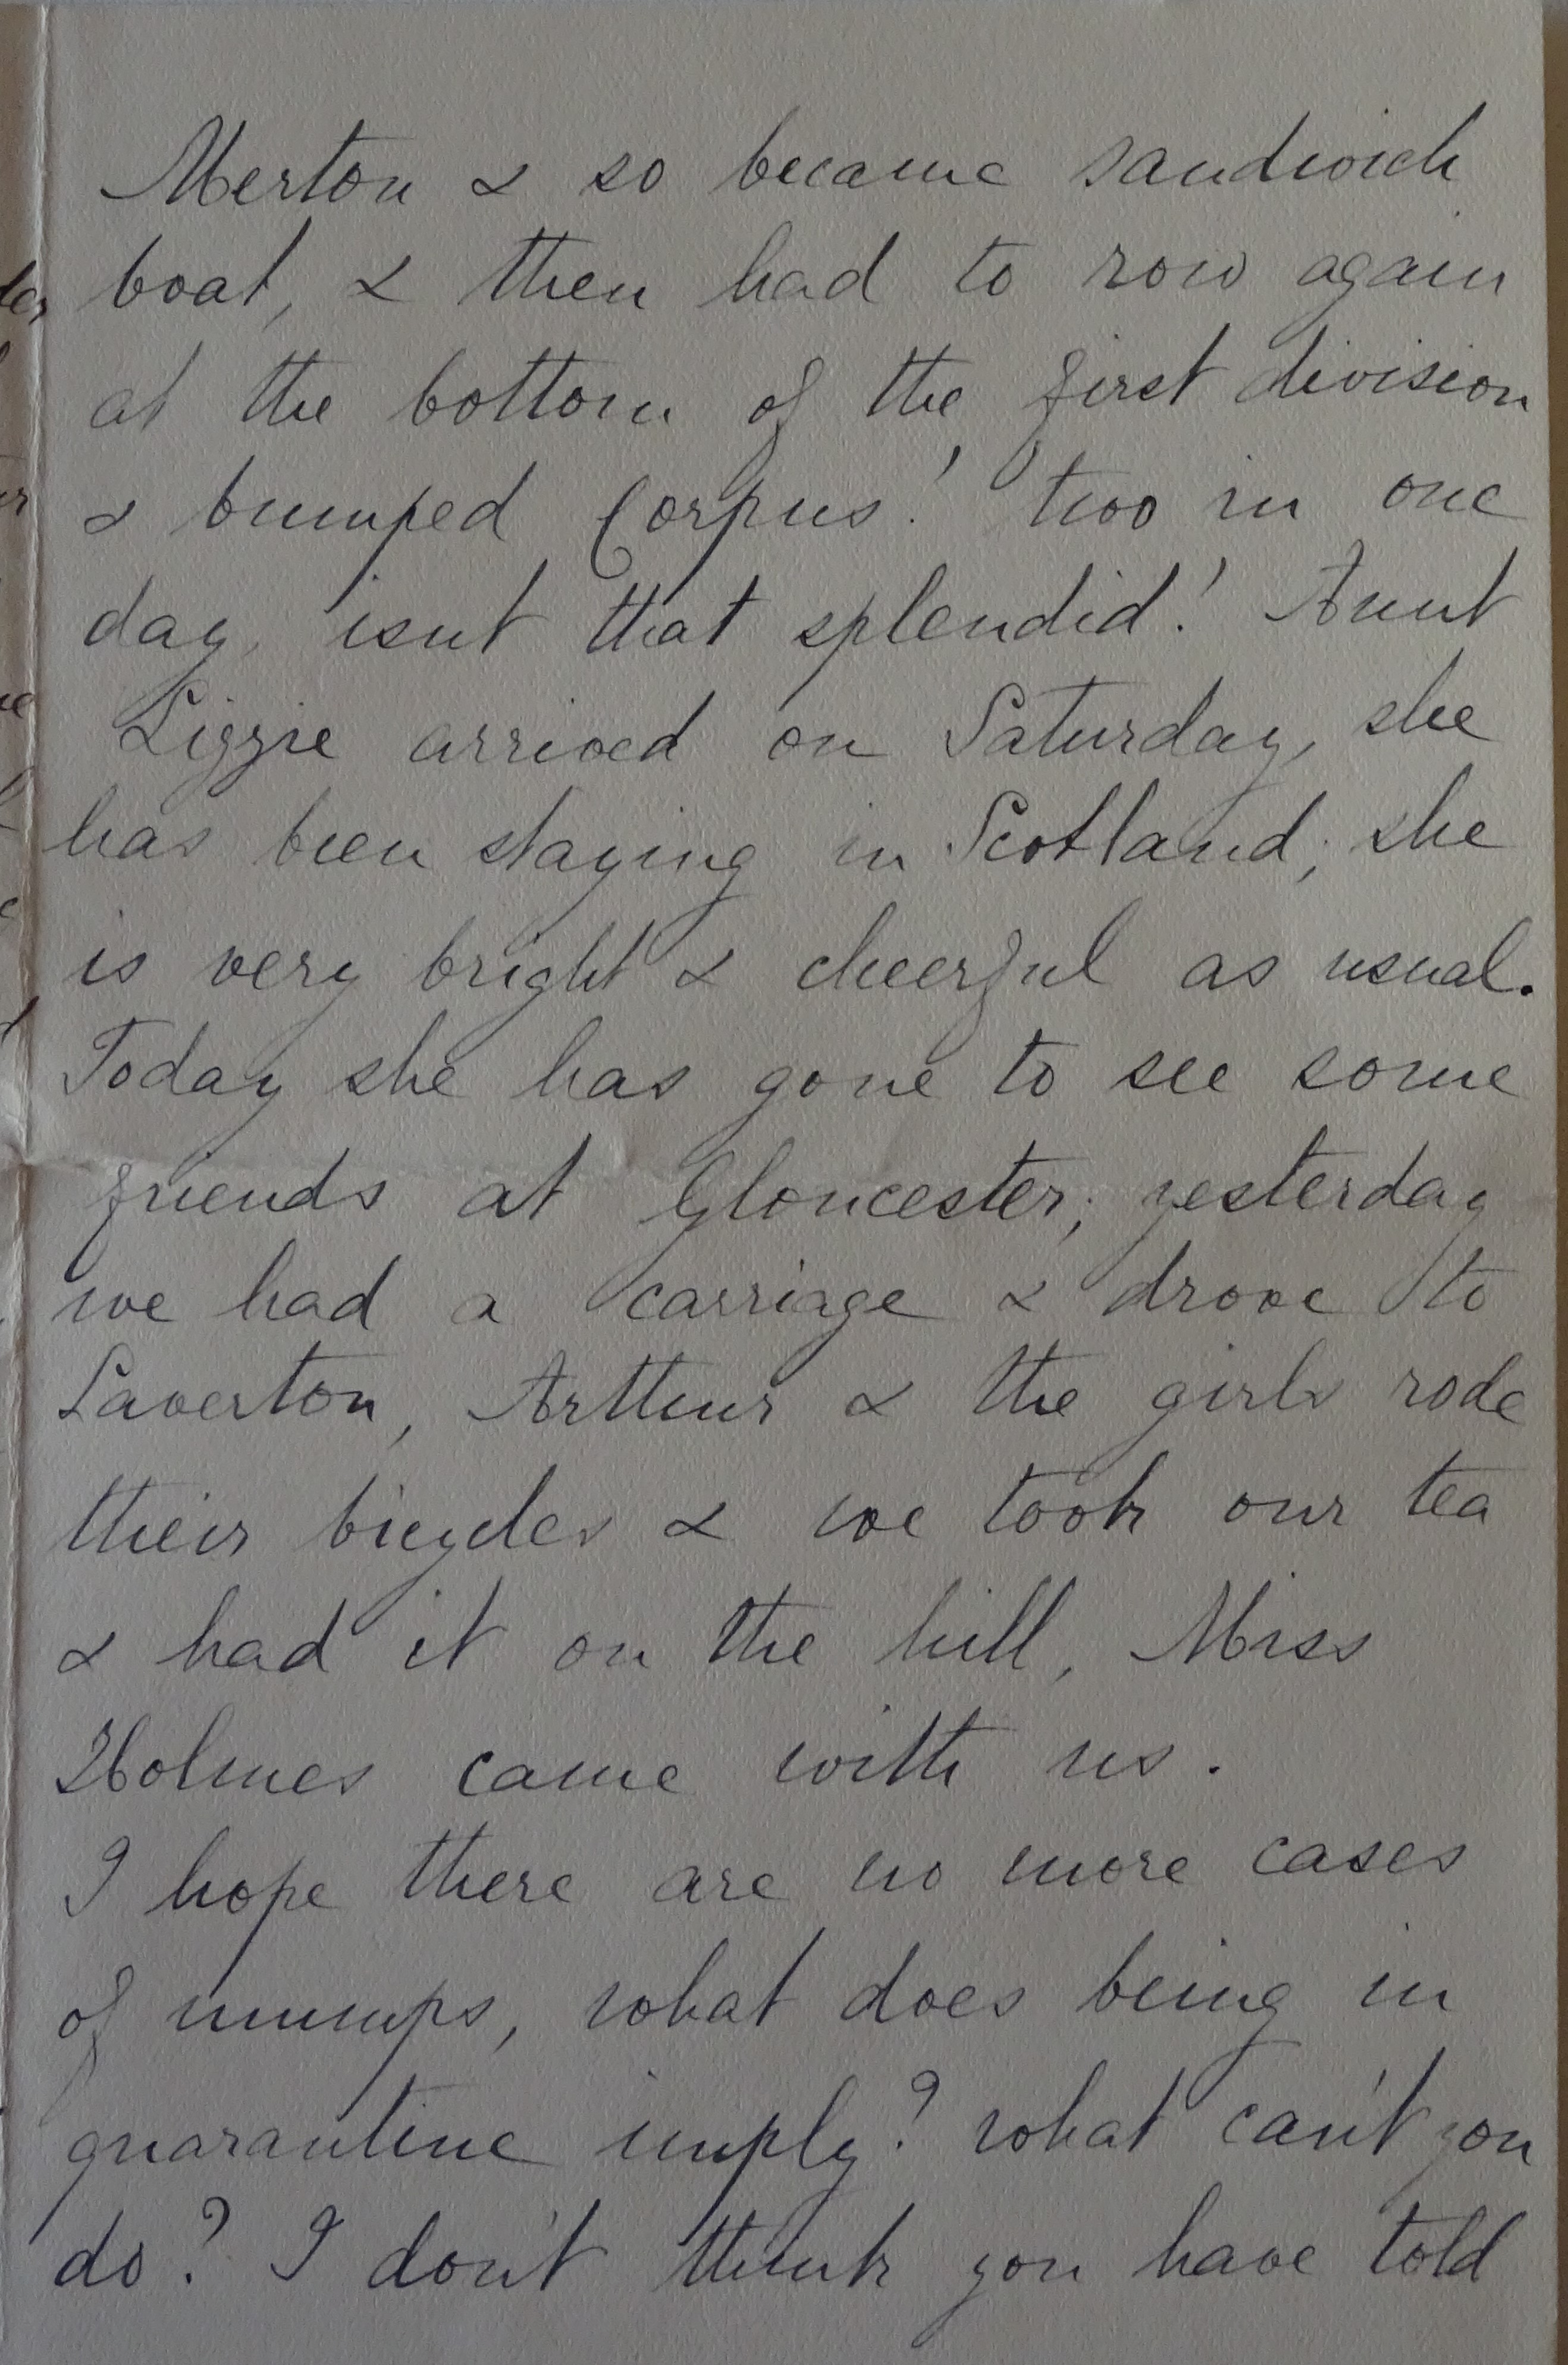 Merton & so became sandwich
boat, & then had to row again
at the bottom of the first division
& bumped Corpus! two in one
day, isnt that splendid! Aunt
Lizzie arrived on Saturday, she
has been staying in Scotland; she
is very bright & cheerful as usual.
Today she has gone to see some
friends at Gloucester; yesterday
we had a carriage & drove to
Laverton, Arthur & the girls rode
their bicycles & we took our tea
& had it on the hill, Miss
Holmes came with us.
I hope there are no more cases
of mumps, what does being in
quarantine imply? what can't you
do? I don't think you have told